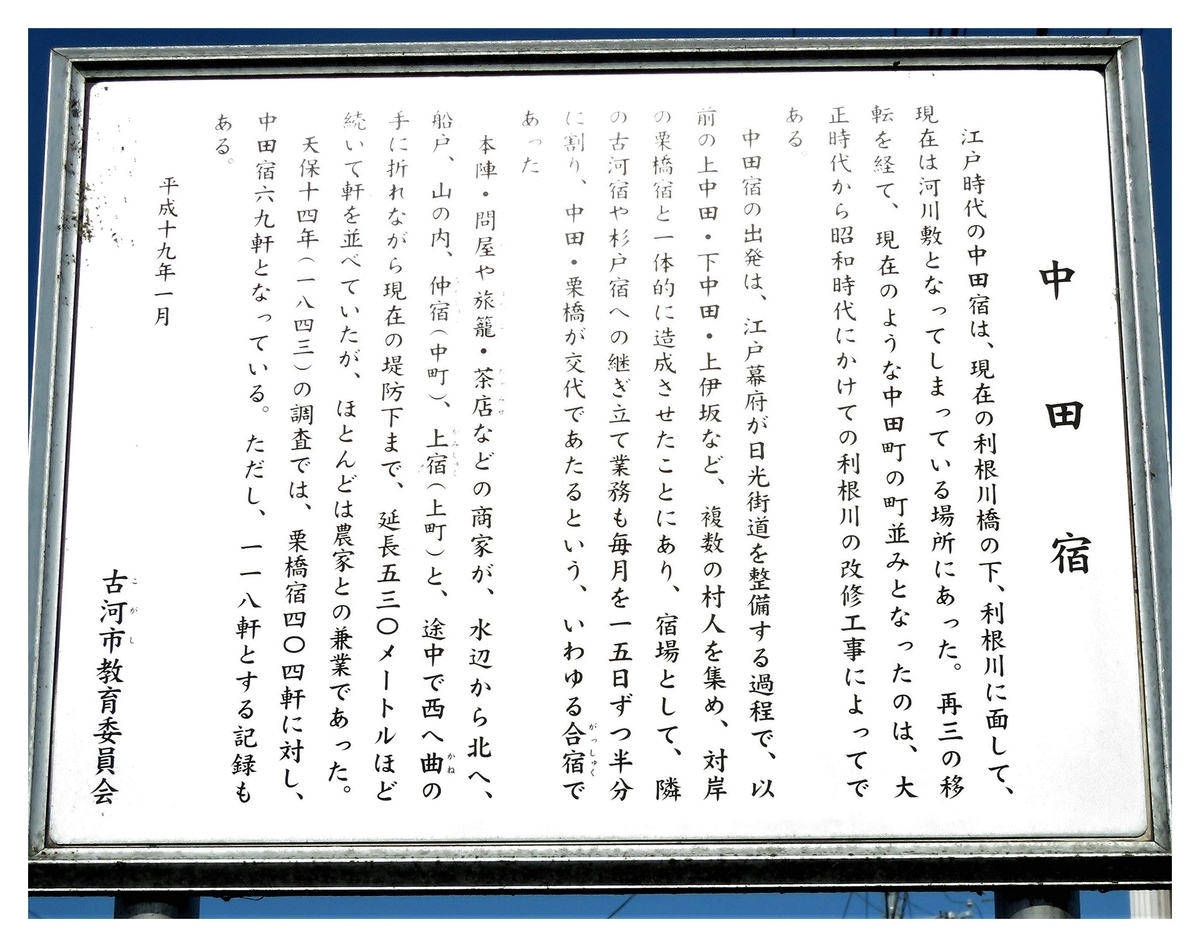 中田宿
江戸時代の中田宿は、現在の利根川橋の下、利根川に面して、
現在は河川敷となってしまっている場所にあった。再三の移
転を経て、現在のような中田町の町並みとなったのは、大
正時代から昭和時代にかけての利根川の改修工事によってで
ある。
中田宿の出発は、江戸幕府が日光街道を整備する過程で、以
前の上中田・下中田・上伊坂など、複数の村人を集め、対岸
の栗橋宿と一体的に造成させたことにあり、宿場として、隣
の古河宿や杉戸宿への継ぎ立て業務も毎月を一五日ずつ半分
に割り、中田・栗橋が交代であたるという、いわゆる合宿で
がっしゅく
あった
本陣・問屋や旅籠・茶店などの商家が、水辺から北へ、
船戸、山の内、仲宿(中町)、上宿(上町)と、途中で西へ曲の
かみしゅく
かね
手に折れながら現在の堤防下まで、延長五三〇メートルほど
続いて軒を並べていたが、ほとんどは農家との兼業であった。
天保十四年(一八四三)の調査では、栗橋宿四〇四軒に対し、
中田宿六九軒となっている。ただし、一一八軒とする記録も
ある。
平成十九年一月
古河市教育委員会
こがし